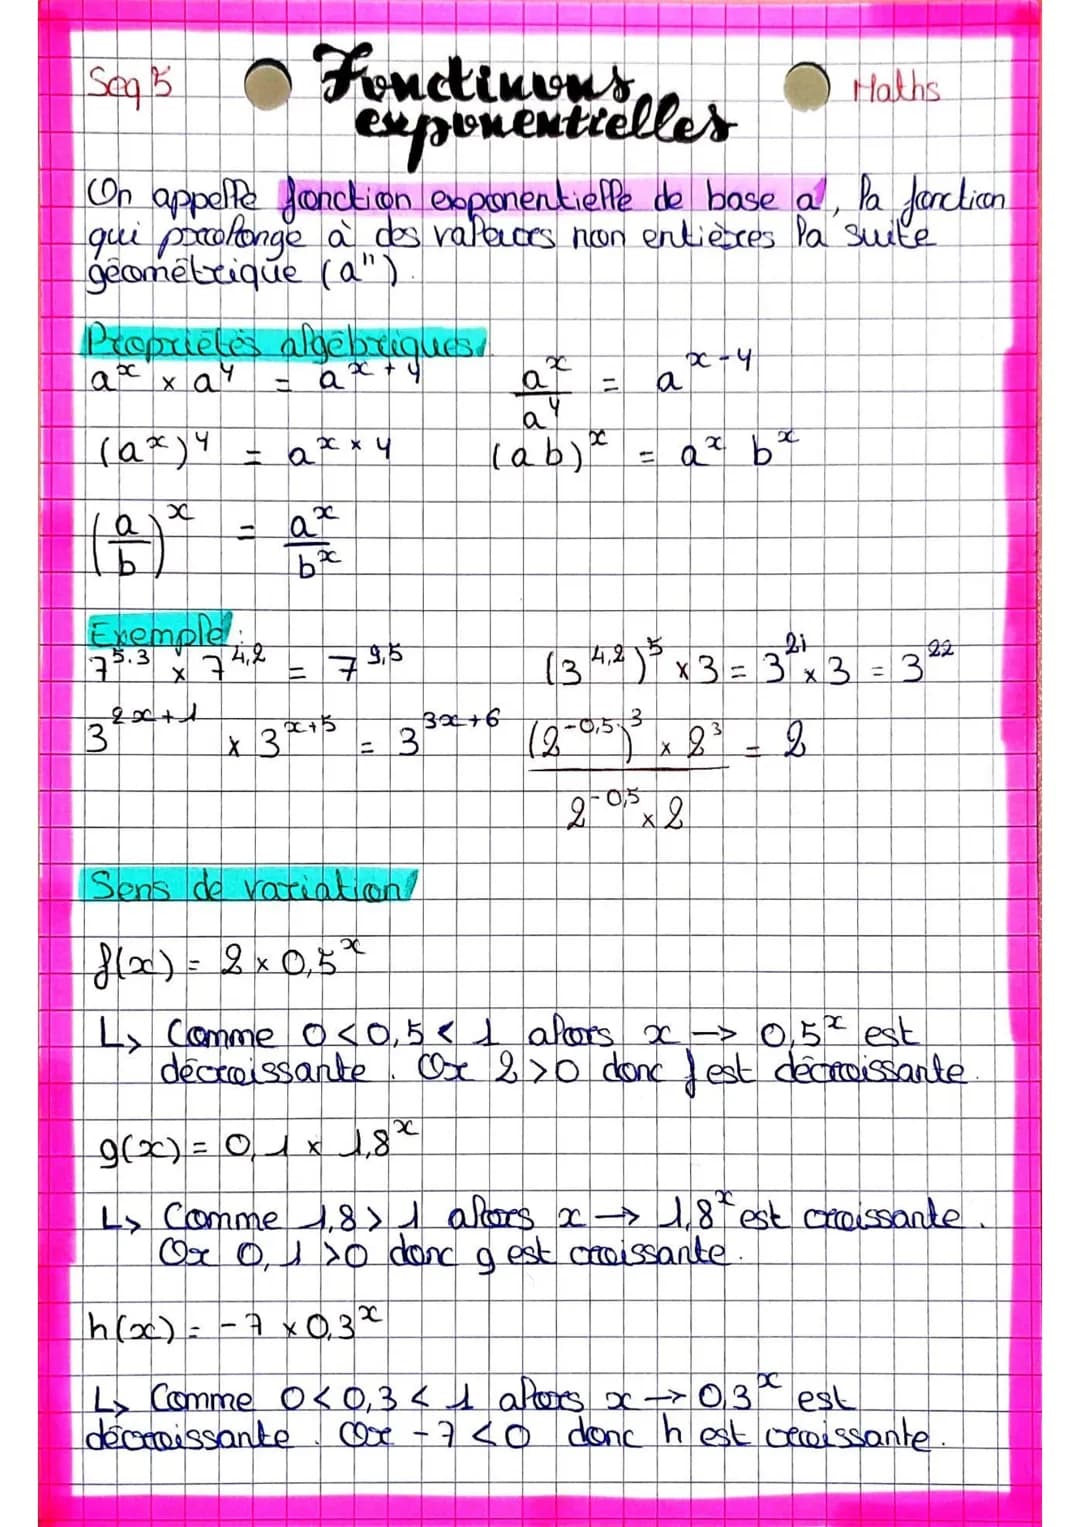 Seq 5
Fonctinons
exponentielles
Maths
On appelle fonction exponentielle de base a, la fonction
qui prolonge à des valeurs non entières la suite
géométrique (aⁿ).
Propriétés algébriques
aˣ × aʸ = aˣ⁺ʸ
aˣ/aʸ = aˣ⁻ʸ
(aˣ)ʸ = a^(x × y)
(ab)ˣ = aˣ bˣ
(a/b)ˣ = aˣ/bˣ
Exemple :
7^5.3 × 7^4,2 = 7^9,5
(3^4,2)^5 × 3 = 3^21 × 3 = 3^22
3^(2x+1) × 3^(x+5) = 3^(3x+6)
((2^-0,5)^3 × 2^3)/(2^-0,5 × 2) = 2
Sens de variation
f(x) = 2 × 0,5ˣ
↳ Comme 0 < 0,5 < 1 alors x → 0,5ˣ est
décroissante. Or 2 > 0 donc f est décroissante.
g(x) = 0,1 × 1,8ˣ
↳ Comme 1,8 > 1 alors x → 1,8ˣ est croissante.
Or 0,1 > 0 donc g est croissante.
h(x) = -7 × 0,3ˣ
↳ Comme 0 < 0,3 < 1 alors x → 0,3ˣ est
décroissante. Or -7 < 0 donc h est croissante.